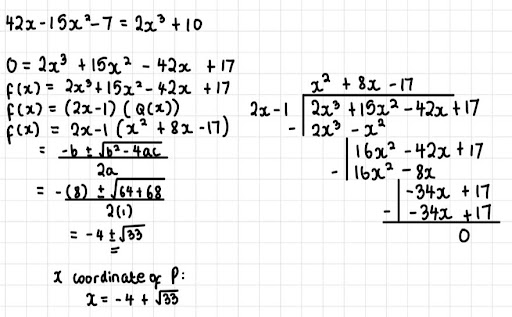 42x - 15x² - 7 = 2x³ + 10
0 = 2x³ + 15x² - 42x + 17
f(x) = 2x³ + 15x² - 42x + 17
f(x) = (2x-1) (Q(x))
f(x) = 2x-1 (x² + 8x -17)
= -b ± √b² - 4ac
2a
= -(8) ± √64+68
2(1)
= -4 ± √33
x coordinate of P:
x = -4 + √33
x² + 8x - 17
2x-1 2x³ + 15x² - 42x + 17
- 2x³ - x²
16x² - 42x + 17
- 16x² - 8x
-34x + 17
- -34x + 17
0